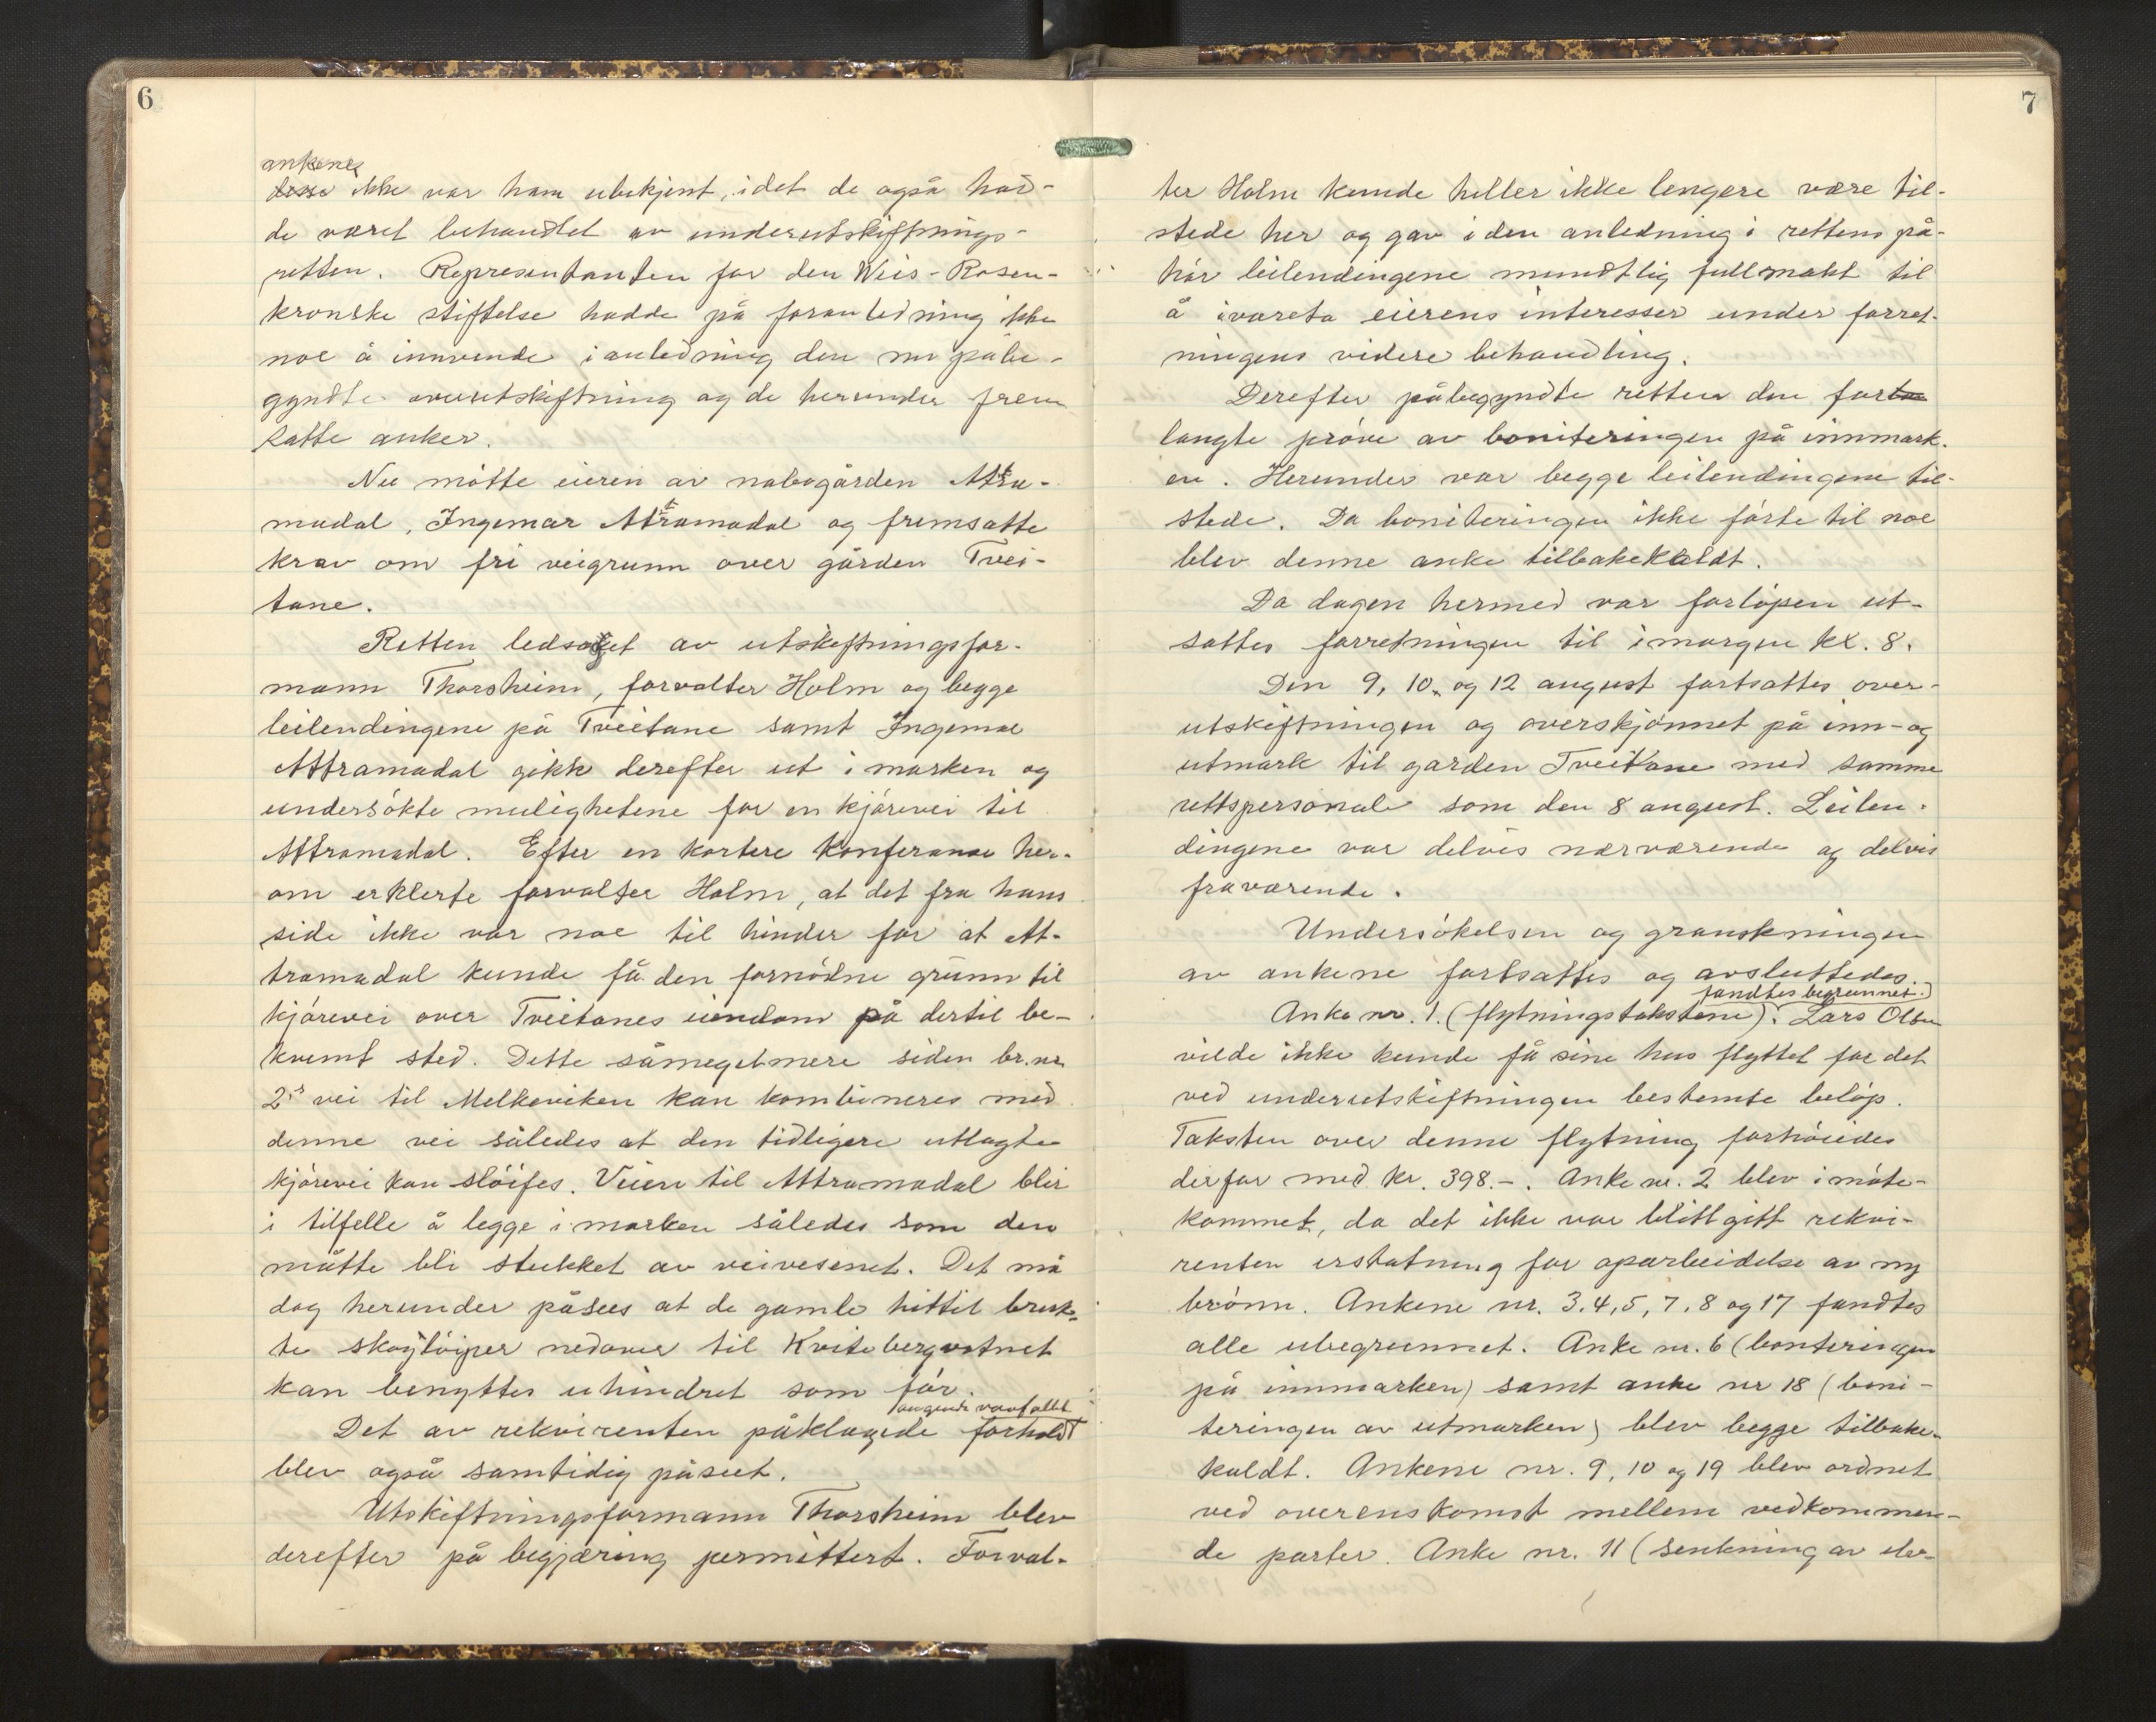 6
ankenes
desse ikke var ham ubekjent, idet de også had-
de været behandlet av underutskiftnings-
retten. Representanten for den Weis-Rosen-
kronske stiftelse hadde på foranledning ikke
noe å innvende i anledning den nu påbe-
gyndte overutskiftning og de herunder frem
satte anker.
Nu møtte eieren av nabogården Attra-
madal, Ingemar Attramadal og fremsatte
krav om fri veigrunn over gården Tvei-
tane.
Retten ledsaget av utskiftningsfor-
mann Thorsheim, forvalter Holm og begge
leilendingene på Tveitane samt Ingemar
Attramadal gikk derefter ut i marken og
undersøkte mulighetene for en kjørevei til
Attramadal. Efter en kortere konferanse her-
om erklerte forvalter Holm, at det fra hans
side ikke var noe til hinder for at At-
tramadal kunde få den fornødne grunn til
kjørevei over Tveitanes eiendom på dertil be-
kvemt sted. Dette såmegetmere siden br.nr.
2's vei til Melkeviken kan kombineres med
denne vei således at den tidligere utlagte
kjørevei kan sløifes. Veien til Attramadal blir
i tilfelle å legge i marken således som den
måtte bli stukket av veivesenet. Det må
dog herunder påsees at de gamle hittil bruk-
te skogløiper nedover til Kvitebergvatnet
kan benyttes uhindret som før.
angående vannfallet
Det av rekvirenten påklagede forhold
blev også samtidig påseet.
Utskiftningsformann Thorsheim blev
derefter på begjæring permittert. Forval-
7
ter Holm kunde heller ikke lengere være til-
stede her og gav i den anledning i rettens på-
hør leilendingene mundtlig fullmakt til
å ivareta eierens interesser under forret-
ningens videre behandling.
Derefter påbegyndte retten den for
langte prøve av boniteringen på innmark-
en. Herunder var begge leilendingene til-
stede. Da boniteringen ikke førte til noe
blev denne anke tilbakekaldt.
Da dagen hermed var forløpen ut-
sattes forretningen til imorgen kl. 8.
Den 9, 10. og 12 august fortsattes over-
utskiftningen og overskjønnet på inn- og
utmark til garden Tveitane med samme
rettspersonale som den 8 august. Leilen-
dingene var delvis nærværende og delvis
fraværende.
Undersøkelsen og granskningen
av ankene fortsattes og avsluttedes.
fandtes begrunnet.)
Anke nr. 1. (flytningstakstene). Lars Olsen
vilde ikke kunde få sine hus flyttet for det
ved underutskiftningen bestemte beløp.
Taksten over denne flytning forhøiedes
derfor med kr. 398.-. Anke nr. 2 blev imøte-
kommet, da det ikke var blitt gitt rekvi-
renten erstatning for oparbeidelse av ny
brønn. Ankene nr. 3.4, 5, 7. 8 og 17 fandtes
alle ubegrunnet. Anke nr. 6 (bonteringen
på innmarken) samt anke nr 18 (boni-
teringen av utmarken) blev begge tilbake-
kaldt. Ankene nr. 9, 10 og 19 blev ordnet
ved overenskomst mellem vedkommen-
de parter. Anke nr. 11 (senkning av elv-